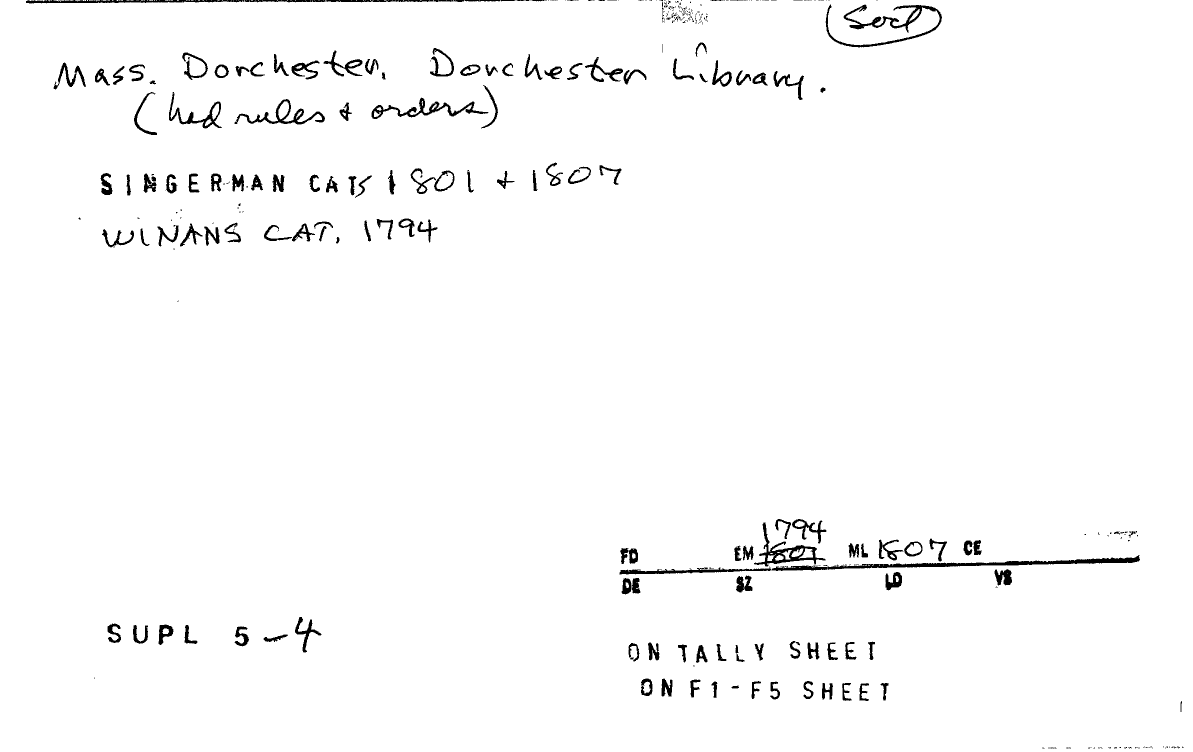 Socl
Mass. Dorchester. Dorchester Library.
(had rules & orders)
SINGERMAN CATS 1801 + 1807
WINANS CAT, 1794
1794
FD EM 1801 ML 1807 CE
DE SZ LD VS
SUPL 5-4
ON TALLY SHEET
ON F1-F5 SHEET